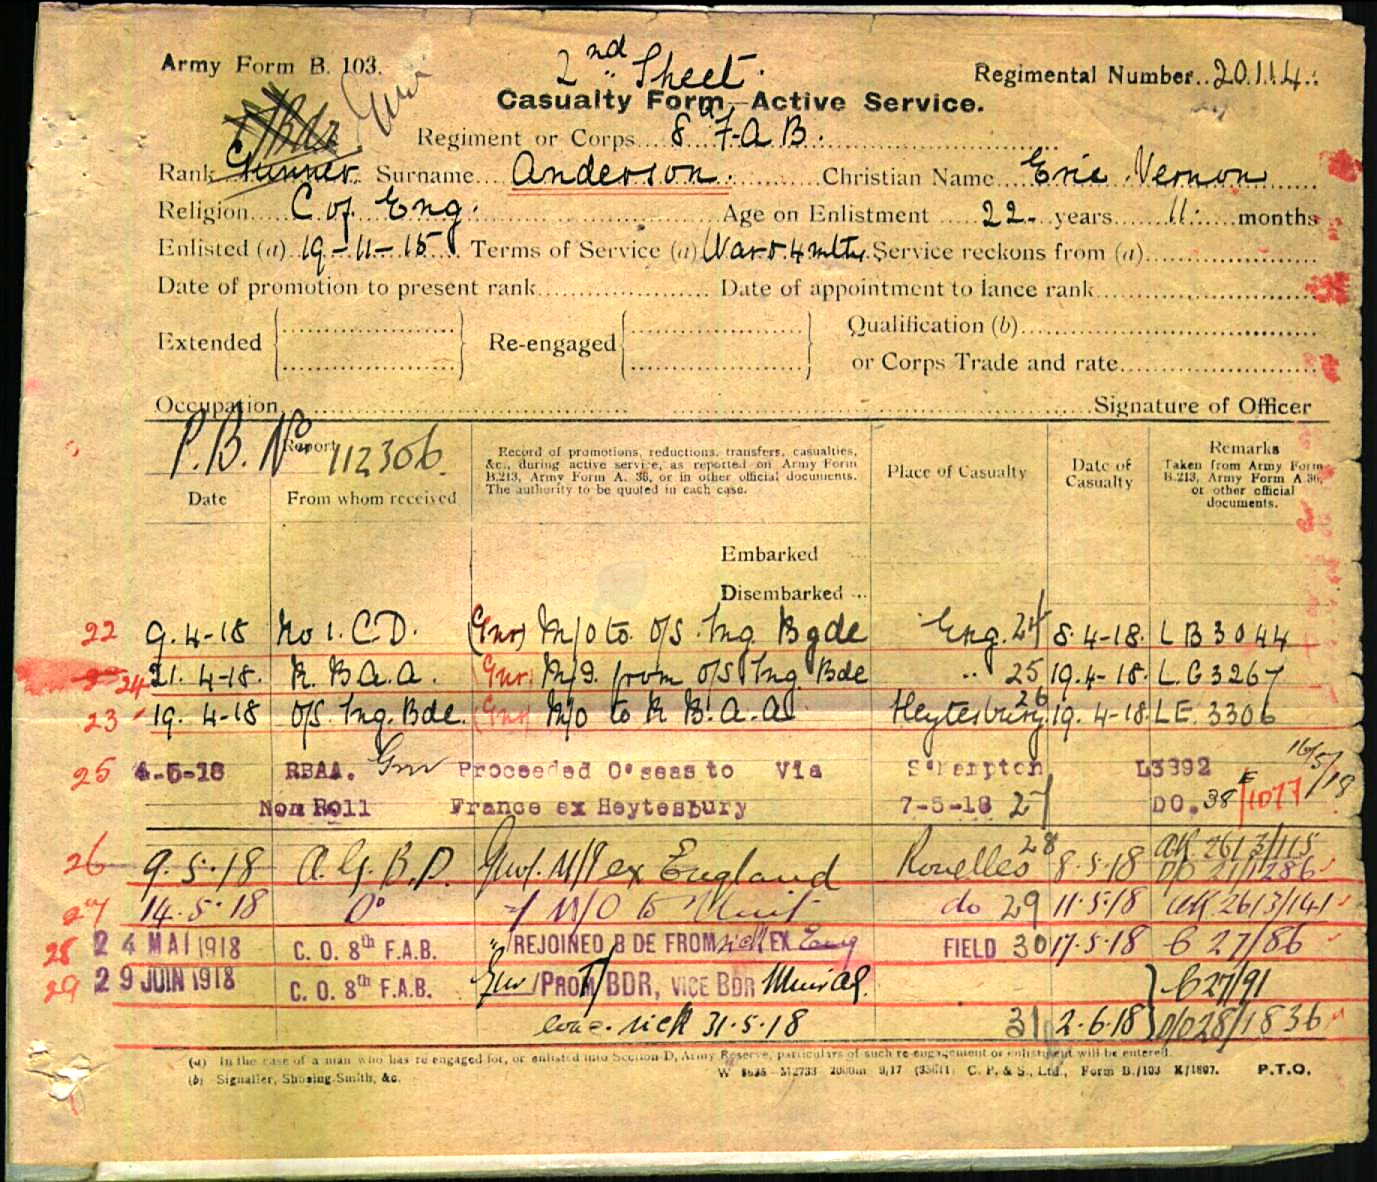 Army Form B. 103.
2nd Sheet.
Regimental Number..20114..
Casualty Form—Active Service.
Gnr
Regiment or Corps 8th F.A.B.
Rank Gunner Surname Anderson. Christian Name Eric Vernon
Religion C of Eng. Age on Enlistment 22 years 11 months
Enlisted (a) 19-11-15 Terms of Service (a) War & 4 mths Service reckons from (a)
Date of promotion to present rank Date of appointment to lance rank
Extended Re-engaged Qualification (b)
or Corps Trade and rate
Occupation Signature of Officer
P.B. No 112306.
Report
Date From whom received
Record of promotions, reductions, transfers, casualties, &c., during active service, as reported on Army Form B.213, Army Form A. 36, or in other official documents. The authority to be quoted in each case.
Place of Casualty
Date of Casualty
Remarks
Taken from Army Form B.213, Army Form A.36, or other official documents.
Embarked
Disembarked
22 9.4-18 No 1. C.D. (Gnr) M/O to O/S Tng Bgde Eng. 24 8.4-18. LB3044
24 21.4-18. R.B.A.A. Gnr. M/I. from O/S Tng Bde " 25 19.4-18. L.G3267
23 19.4-18 O/S. Tng. Bde. (Gnr) M/O to R.B.A.A Heytesbury 26 19.4-18 LE. 3306
25 4-5-18 RBAA. Gnr Proceeded O'seas to Via S'Hampton L3392 16/5/18
Nom Roll France ex Heytesbury 7-5-18 27 DO. 38 E/1077
26 9.5.18 A.G.B.D. Gnr. M/I ex England Rouelles 28 8.5.18 AK 2613/115
DO 21/1286
27 14.5.18 Do M/O to Unit do 29 11.5.18 AK 2613/141
28 24 MAI 1918 C.O. 8th F.A.B. "/REJOINED BDE FROM sick EX Eng FIELD 30 17.5.18 B 27/86
29 29 JUIN 1918 C.O. 8th F.A.B. Gnr/PROM T/BDR, VICE BDR B27/91
evac. sick 31.5.18 31 2.6.18 D/O28/1836
(a) In the case of a man who has re-engaged for, or enlisted into Section D, Army Reserve, particulars of such re-engagement or enlistment will be entered.
(b) Signaller, Shoeing Smith, &c. C. P. & S., Ltd., Form B./103 K/1807. P.T.O.